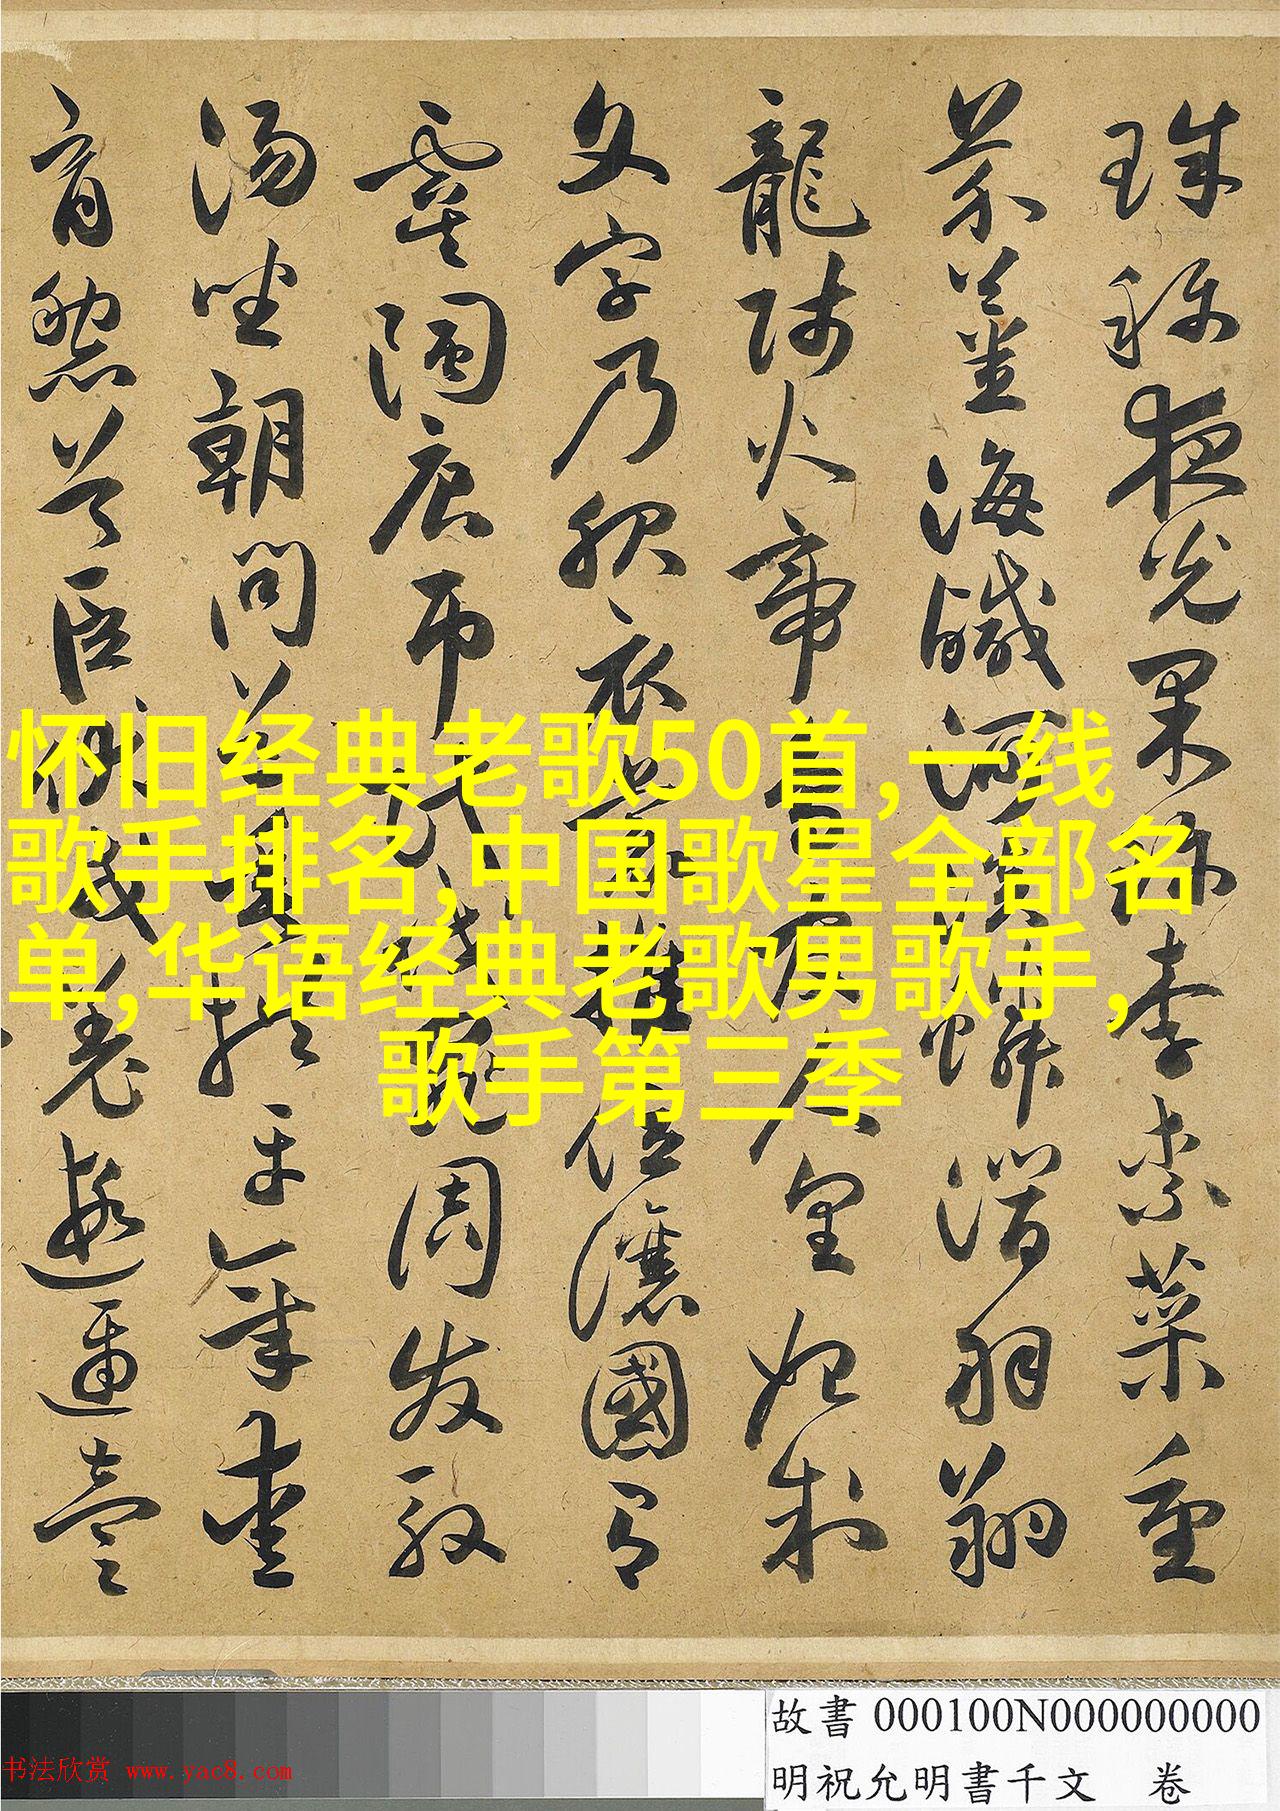 珠称夜光果珎李柰菜重
芥薑海鹹河淡鱗潛羽翔
龍師火帝鳥官人皇始制
文字乃服衣裳推位讓國有
虞陶唐弔民伐罪周发殷
湯坐朝問道垂拱平章愛
育黎首臣伏戎羌遐邇壹
怀旧经典老歌50首,一线
歌手排名,中国歌星全部名
单,华语经典老歌男歌手,
歌手第三季
故書 000100N000000000
明祝允明書千文 卷
书法欣赏 www.yac8.com